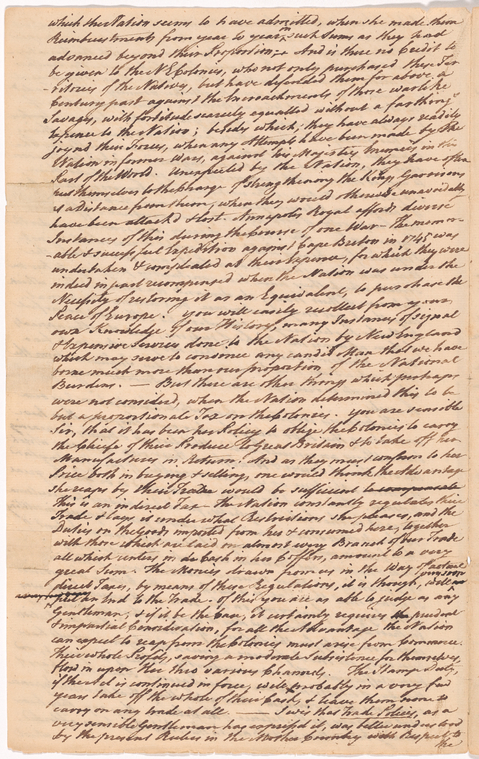 which the Nation seems to have admitted, when she made them
Reimbursements from year to year, in such Sums as they had
advanced beyond their Proportion. And is there no Credit to
be given to the NE Colonies, who not only purchased these Ter-
ritories of the Natives, but have defended them for above a
Century past against the Incroachments of those warlike
Savages, with fortitude scarcely equalled without a farthing
expence to the Nation; besides which, they have always readily
joyned their Forces, when any Attempts have been made by the
Nation in former Wars, against his Majestys Enemies in this
Part of the World. Unexpected by the Nation, they have often
put themselves to the Charge of strengthening the Kings Garrisons
at a Distance from them, when they would otherwise unavoidably
have been attack'd & lost. Annapolis Royal affords diverse
Instances of this during the Course of one War. The memor-
able & successful Expedition against Cape Breton in 1745 was
undertaken & consolidated at their expence, for which they were
indeed in part recompensed when the Nation was under the
Necessity of restoring it as an Equivalent, to purchase the
Peace of Europe. You will easily recollect from your
own Knowledge of our History, many Instances of signal
& expensive Services done to the Nation by New England
which may serve to convince any candid Man that we have
borne much more than our proportion of the National
Burdens. — But there are other things which perhaps
were not considered, when the Nation determined this to be
but a proportionate Tax on the Colonies. You are sensible
Sir, that it has been her Policy to oblige the Colonies to carry
the chief of their Produce to Great Britain & to take off her
Manufactures in Return. And as they must conform to her
Price both in buying & selling, one would think the Advantage
she reaps by their Trade would be sufficient
This is an indirect Tax - The Nation constantly regulates their
Trade & lays it under what Restrictions she pleases, and the
Duties on the goods imported from her & consumed here, together
with those which are laid on almost every Branch of our Trade
all which center in her Coffers, amount to a very
great Sum. The Moneys drawn from us in the Way of actual
direct Taxes, by means of these Regulations, it is thought, will
put an End to the Trade. of this you are as able to judge as any
Gentleman; & if it be the Case, it certainly requires the prudent
& impartial Consideration, for all the Advantage the Nation
can expect to reap from the Colonies must arise from Commerce.
Their whole Profits, saving a moderate Subsistence for themselves,
flow in upon her thro various Channels. The Stamp Duty,
if the Act is continued in force, will probably in a very few
years take off the whole of their Cash, & leave them none to
carry on any trade at all. I wish that Trade Policy, as a
very sensible Gentleman has express'd it, was better understood
by the present Rulers in the Mother Country with Respect to
the